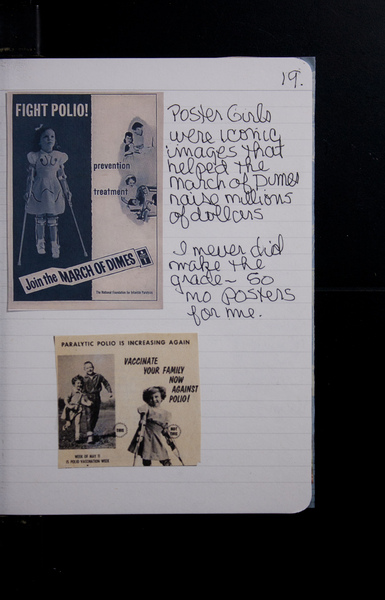 19.
FIGHT POLIO!
prevention
treatment
Join the MARCH OF DIMES
The National Foundation for Infantile Paralysis
Poster Girls
were iconic
images that
helped the
March of Dimes
raise millions
of dollars
I never did
make the
grade – so
no posters
for me.
PARALYTIC POLIO IS INCREASING AGAIN
VACCINATE
YOUR FAMILY
NOW
AGAINST
POLIO!
THIS
NOT
THIS
WEEK OF MAY
IS POLIO VACCINATION WEEK